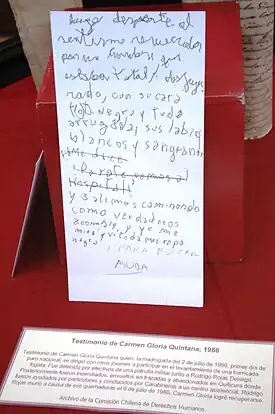 luego desperté al
sentirme
por un hombre que
estaba total/ desfigu
rado, con su cara
toda negra y toda
arrugada, sus labios
blancos y
me dice
Párate vamos al
Hospital
y salimos caminando
como verdaderos
zoombis, y yo me
miro y
negro
AUDA
Testimonio de Carmen Gloria Quintana, 1986
Testimonio de Carmen Gloria Quintana quien, la madrugada del 2 de julio de 1986, primer día de
paro nacional, se dirigió con otros jóvenes a participar en el levantamiento de una barricada
fogata. Fue detenida por efectivos de una patrulla militar junto a Rodrigo Rojas Denegri.
Posteriormente fueron incendiados, envueltos en frazadas y abandonados en Quilicura donde
fueron ayudados por particulares y conducidos por Carabineros a un centro asistencial. Rodrigo
Rojas murió a causa de sus quemaduras el 6 de julio de 1986, Carmen Gloria logró recuperarse.
Archivo de la Comisión Chilena de Derechos Humanos.